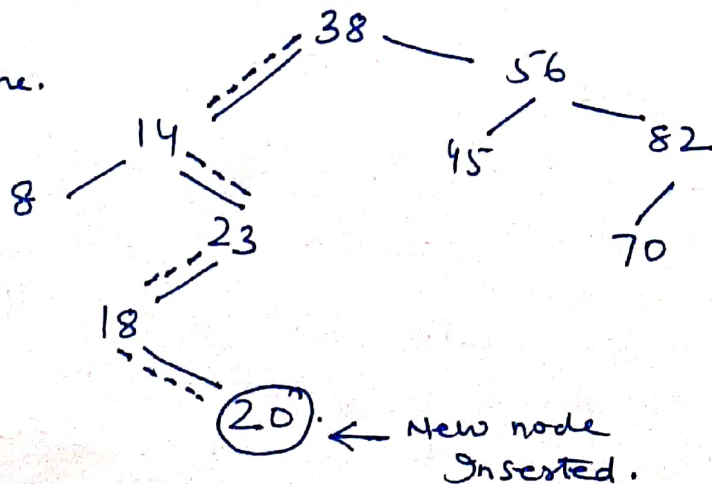 38
56
14
45
82
8
23
70
18
20
← New node
Inserted.